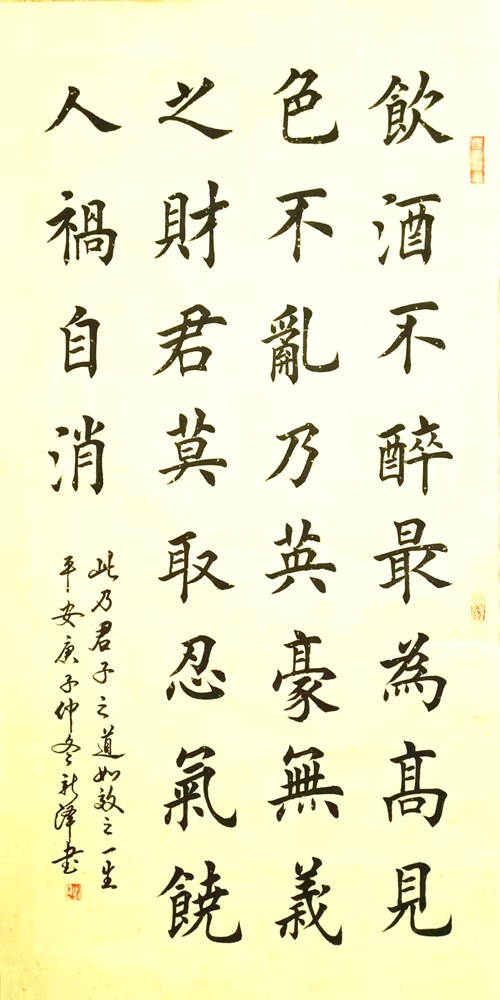 飲酒不醉最為髙見
色不亂乃英豪無義
之財君莫取忍氣饒
人禍自消
此乃君子之道如效之一生
平安庚子仲冬新澤書